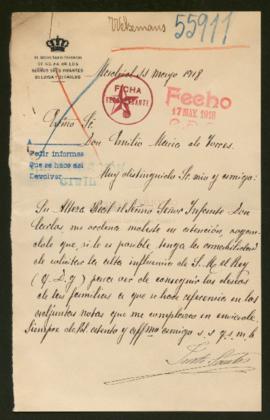 Wekemans
55911
EL SECRETARIO TESORERO
DE SS.AA.RR. LOS
SERMOS. SRES. INFANTES
DA. LUISA Y D. CARLOS
Madrid 15 mayo 1918
FICHA
Fecho
17 MAY. 1918
Excmo Sr.
Don Emilio María de Torres
Pedir informes
que se hace así
Devolver.
CIVIL
Muy distinguido Sr. mio y amigo:
Su Alteza Real el Sermo Señor Infante Don
Carlos, me ordena moleste su atención rogan-
dole que, si le es posible tenga la amabilidad
de solicitar la alta influencia de S. M. el Rey
(q. D. g) para ver de conseguir los deseos
de las familias a que se hace referencia en las
adjuntas notas que me complazco en enviarle
Siempre de Vd. atento y affmo amigo s. s. q. s. m. b